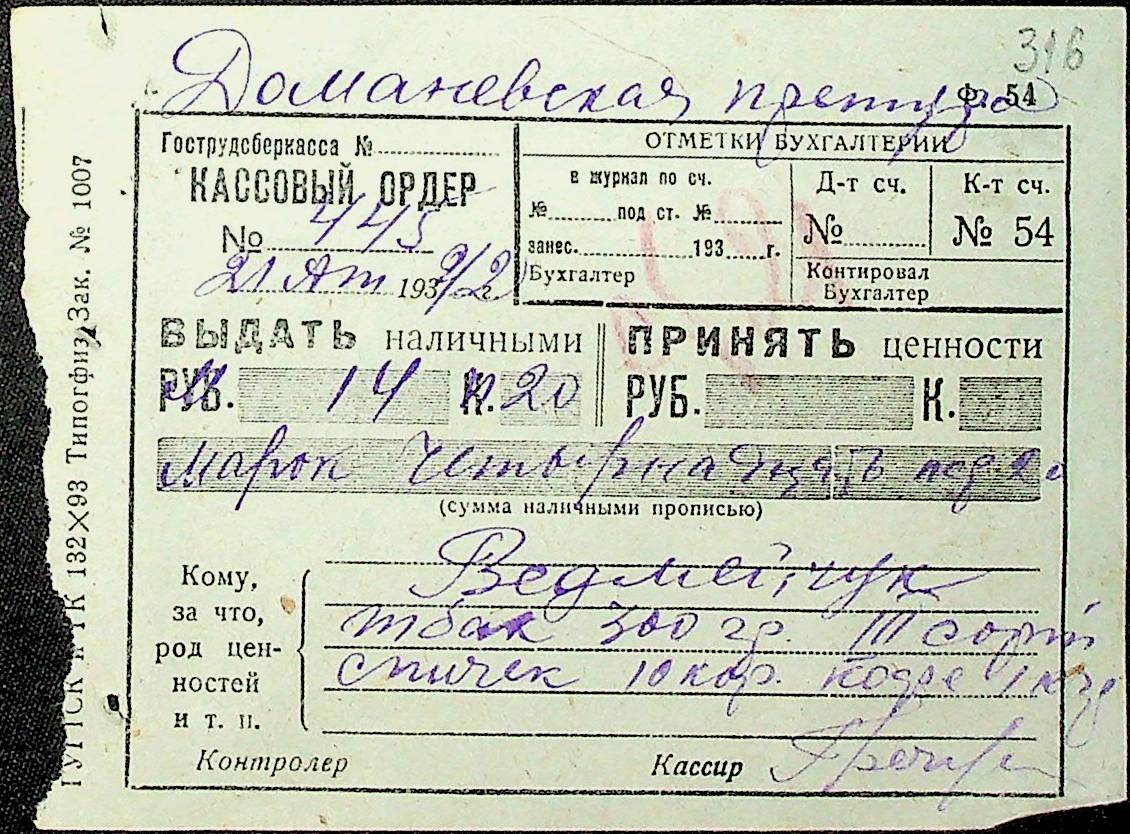 316
Доманевская претура
Ф. 54
Гострудсберкасса №
КАССОВЫЙ ОРДЕР
№ 445
21 Апт 193 г.
ОТМЕТКИ БУХГАЛТЕРИИ
в журнал по сч.
№ под ст. №
занес. 193 г.
Бухгалтер
Д-т сч.
№
К-т сч.
№ 54
Контировал
Бухгалтер
ВЫДАТЬ наличными
РУБ. 14 К. 20
ПРИНЯТЬ ценности
РУБ. К.
марок Четырнадцать
(сумма наличными прописью)
Кому,
за что,
род цен-
ностей
и т. п.
Ведмейчук
тбак 300 гр. III сорт
спичек 10 кор.
Контролер
Кассир
132×93 Типогфиз Зак. № 1007